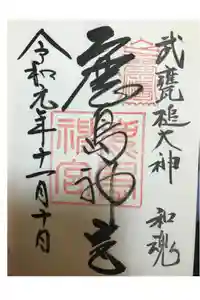 武甕槌大神
和魂
鹿島神宮
令和元年十一月十日
鹿島神宮